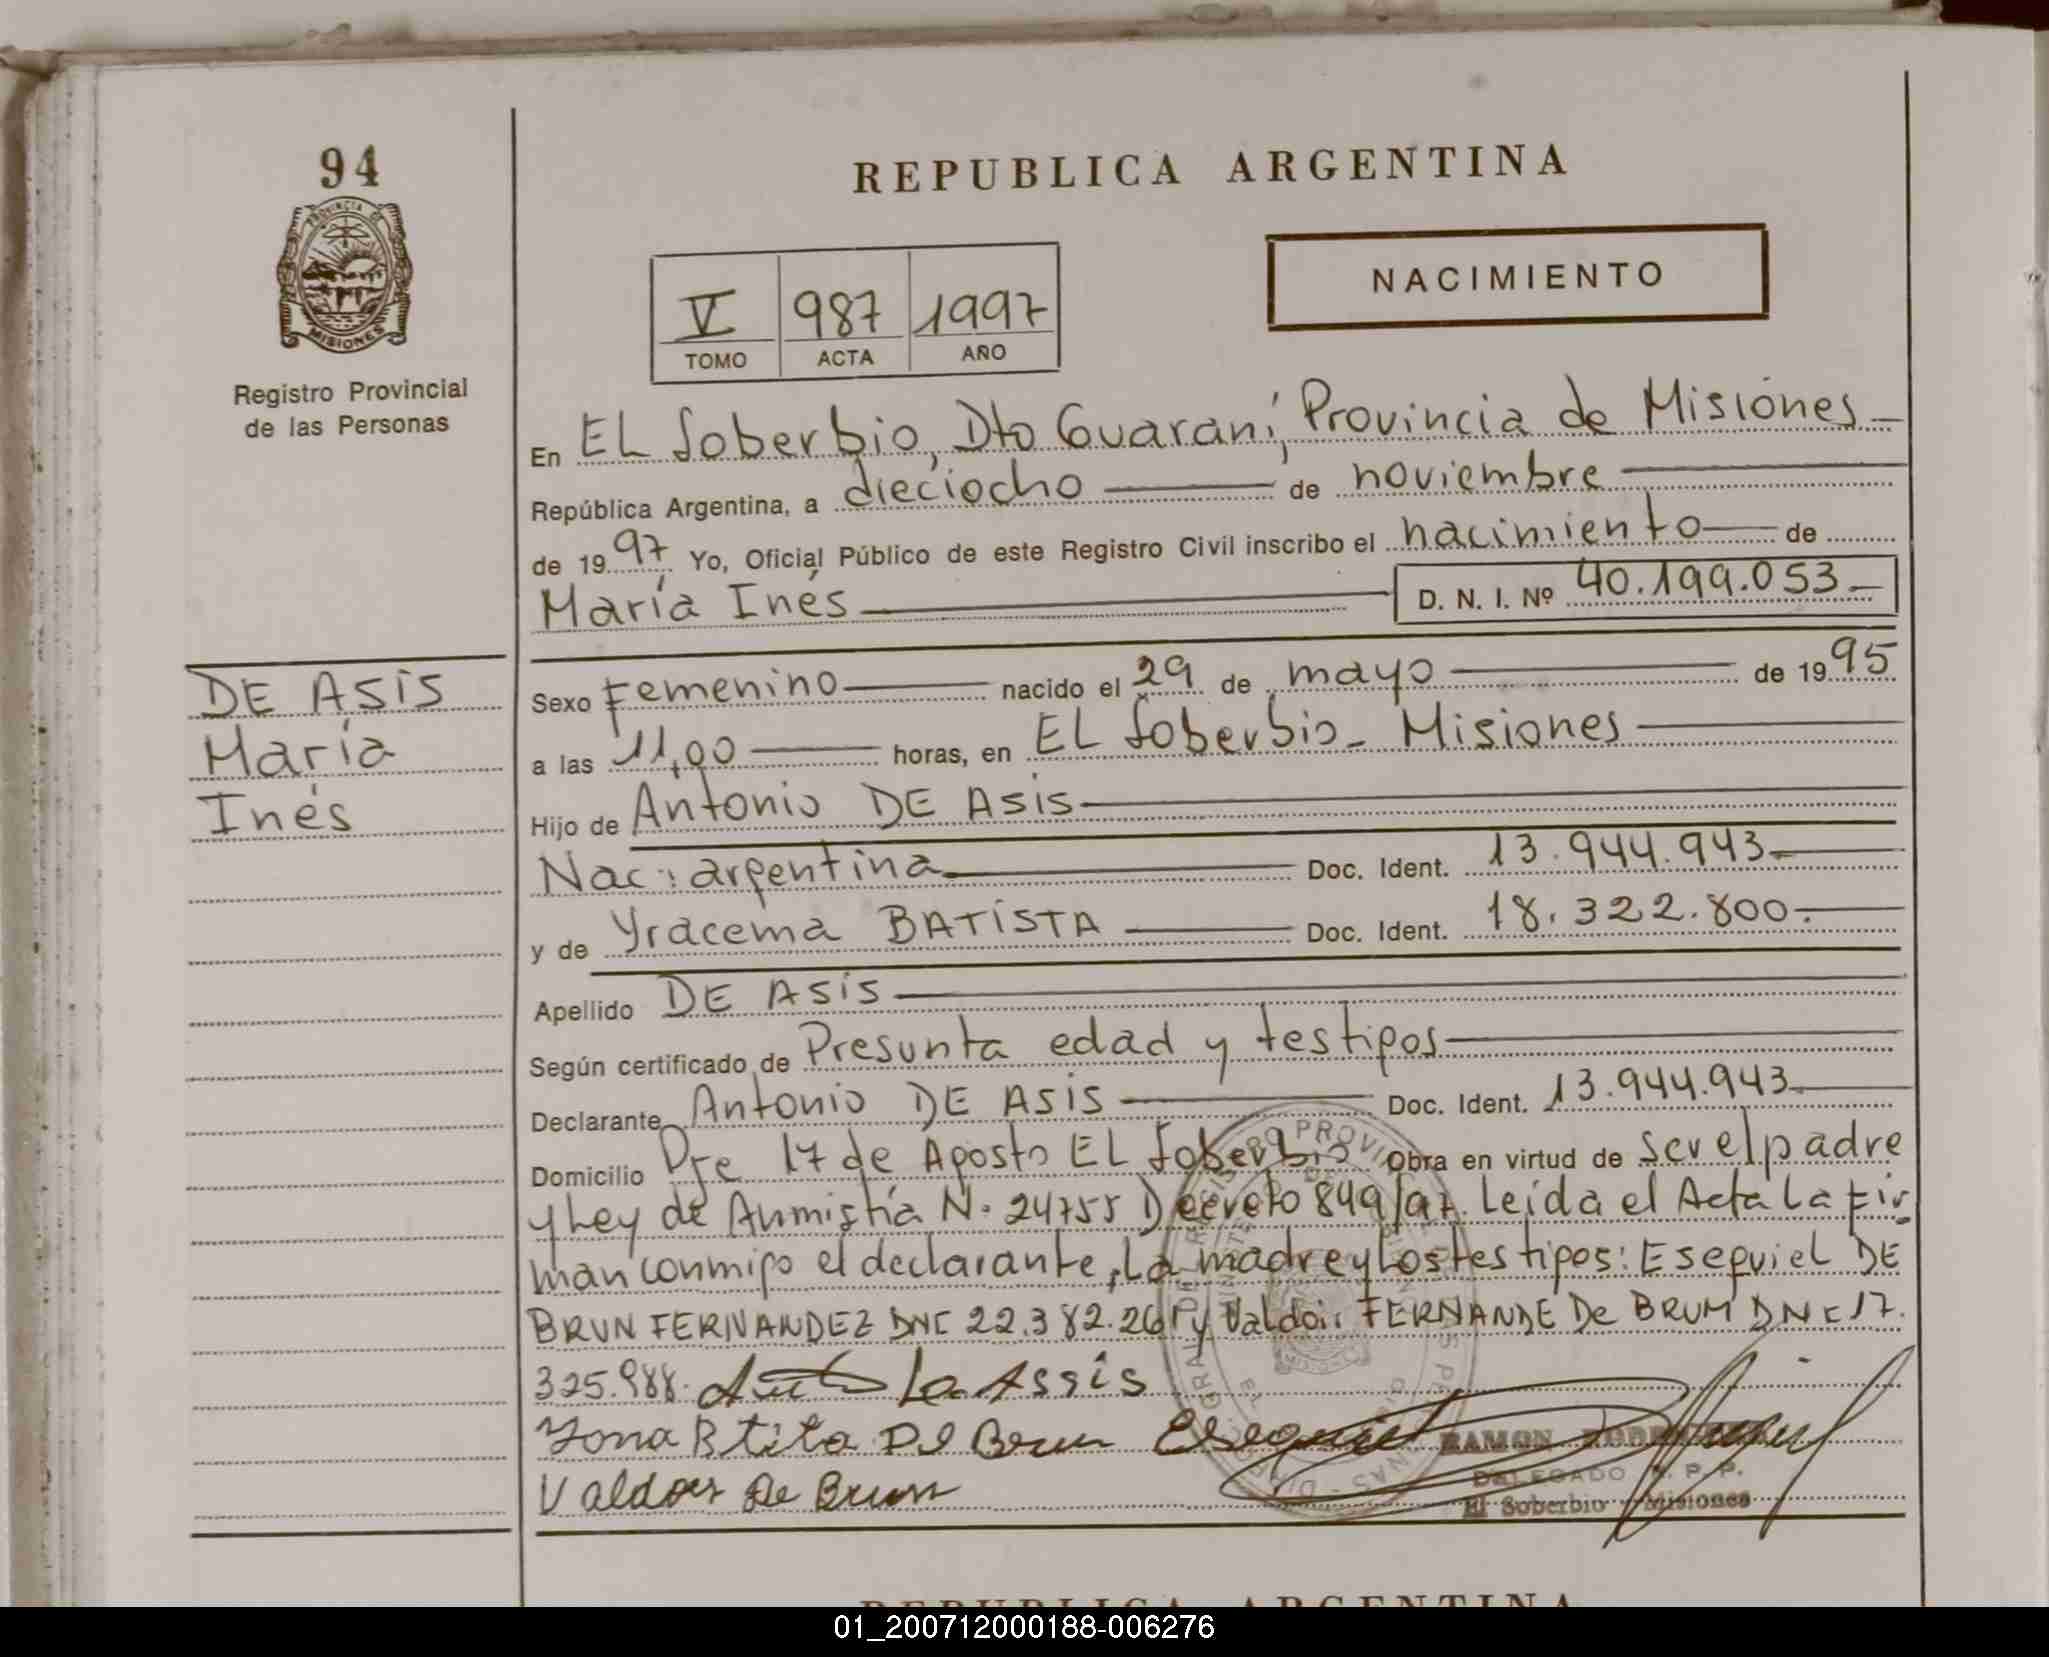 94
PROVINCIA DE
MISIONES
Registro Provincial
de las Personas
REPUBLICA ARGENTINA
NACIMIENTO
V 987 1997
TOMO ACTA AÑO
En EL Soberbio, Dto Guaraní, Provincia de Misiones
República Argentina, a dieciocho de noviembre
de 1997 Yo, Oficial Público de este Registro Civil inscribo el nacimiento de
María Inés D. N. I. Nº 40.199.053
DE ASIS
María
Inés
Sexo Femenino nacido el 29 de mayo de 1995
a las 11,00 horas, en EL Soberbio - Misiones
Hijo de Antonio DE ASIS
Nac: argentina Doc. Ident. 13.944.943
y de Yracema BATISTA Doc. Ident. 18.322.800.
Apellido DE ASIS
Según certificado de Presunta edad y testigos
Declarante Antonio DE ASIS Doc. Ident. 13.944.943
Domicilio Pje 17 de Agosto EL Soberbio Obra en virtud de ser el padre
y Ley de Anmistía N. 24755 Decreto 849/97. Leída el Acta La fir-
man conmigo el declarante, La madre y Los testigos: Esequiel DE
BRUN FERNANDEZ DNI 22.382.261 y Valdoir FERNANDE De BRUM DNI 17.
325.988. La Assis
De Brum Esequiel
Valdoir De Brum
RAMON
DELEGADO R. P. P.
El Soberbio - Misiones
REPUBLICA ARGENTINA
01_200712000188-006276